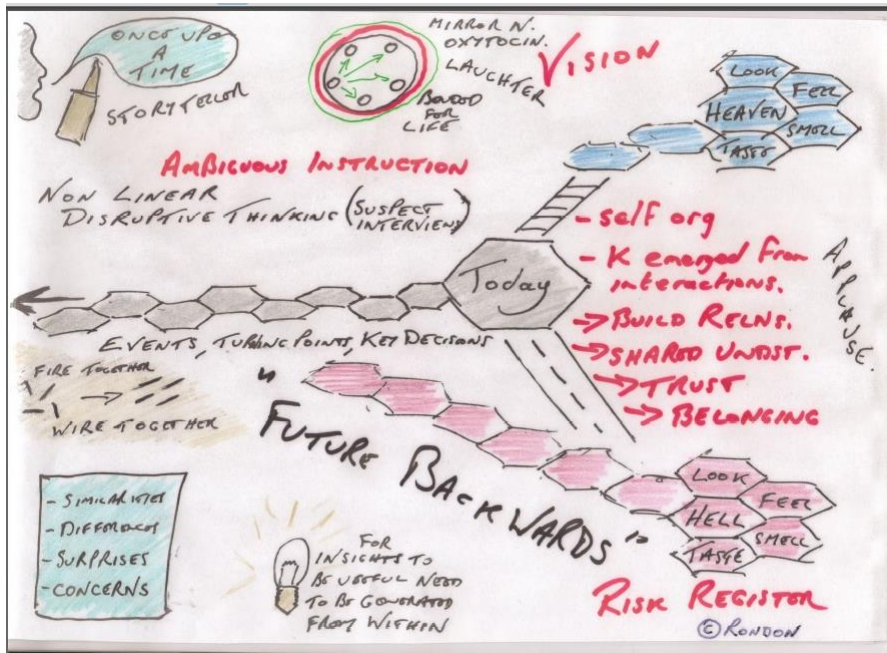 ONCE UPON
A
TIME
STORYTELLER
MIRROR N.
OXYTOCIN.
LAUGHTER
BONDED
FOR
LIFE
VISION
LOOK
FEEL
HEAVEN
SMELL
TASTE
AMBIGUOUS INSTRUCTION
NON LINEAR
DISRUPTIVE THINKING (SUSPECT
INTERVIEW)
Today
- self org
- K emerged from
interactions.
→ BUILD RELNS.
→ SHARED UNDST.
→ TRUST
→ BELONGING
APPLAUSE.
EVENTS, TURNING POINTS, KEY DECISIONS
FIRE TOGETHER
WIRE TOGETHER
"FUTURE BACKWARDS"
- SIMILARITIES
- DIFFERENCES
- SURPRISES
- CONCERNS
FOR
INSIGHTS TO
BE USEFUL NEED
TO BE GENERATED
FROM WITHIN
LOOK
FEEL
HELL
SMELL
TASTE
RISK REGISTER
© RONDON